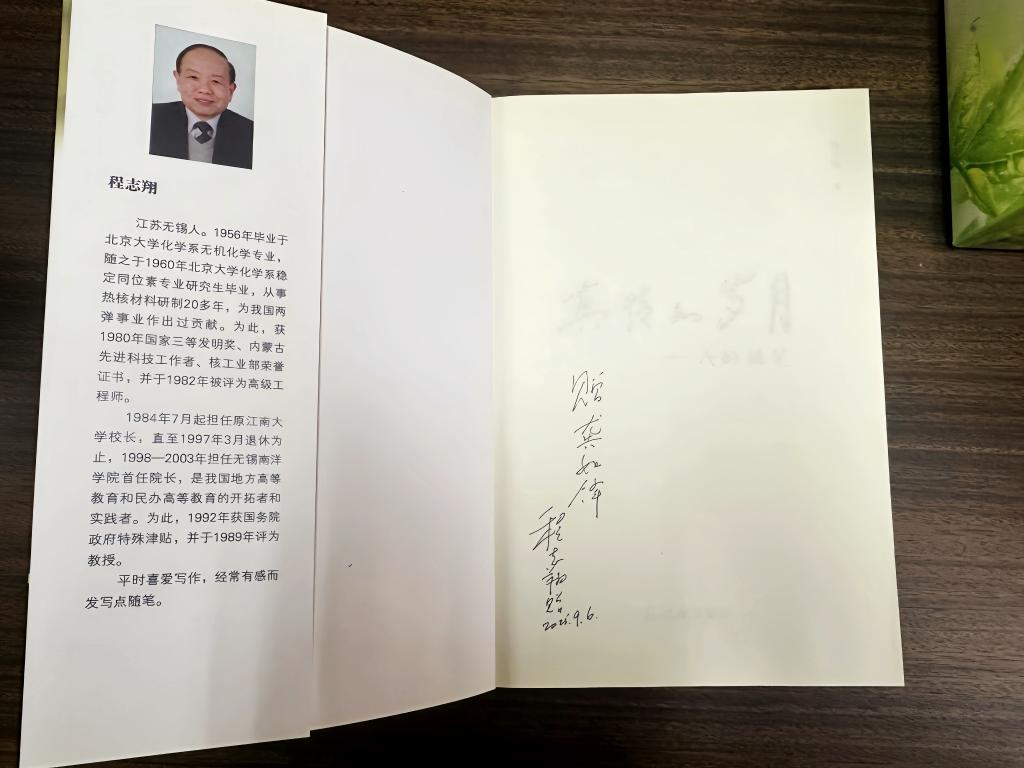 程志翔
江苏无锡人。1956年毕业于
北京大学化学系无机化学专业，
随之于1960年北京大学化学系稳
定同位素专业研究生毕业，从事
热核材料研制20多年，为我国两
弹事业作出过贡献。为此，获
1980年国家三等发明奖、内蒙古
先进科技工作者、核工业部荣誉
证书，并于1982年被评为高级工
程师。
1984年7月起担任原江南大
学校长，直至1997年3月退休为
止，1998—2003年担任无锡南洋
学院首任院长，是我国地方高等
教育和民办高等教育的开拓者和
实践者。为此，1992年获国务院
政府特殊津贴，并于1989年评为
教授。
平时喜爱写作，经常有感而
发写点随笔。
赠
龚如锋
程志翔
9.6.